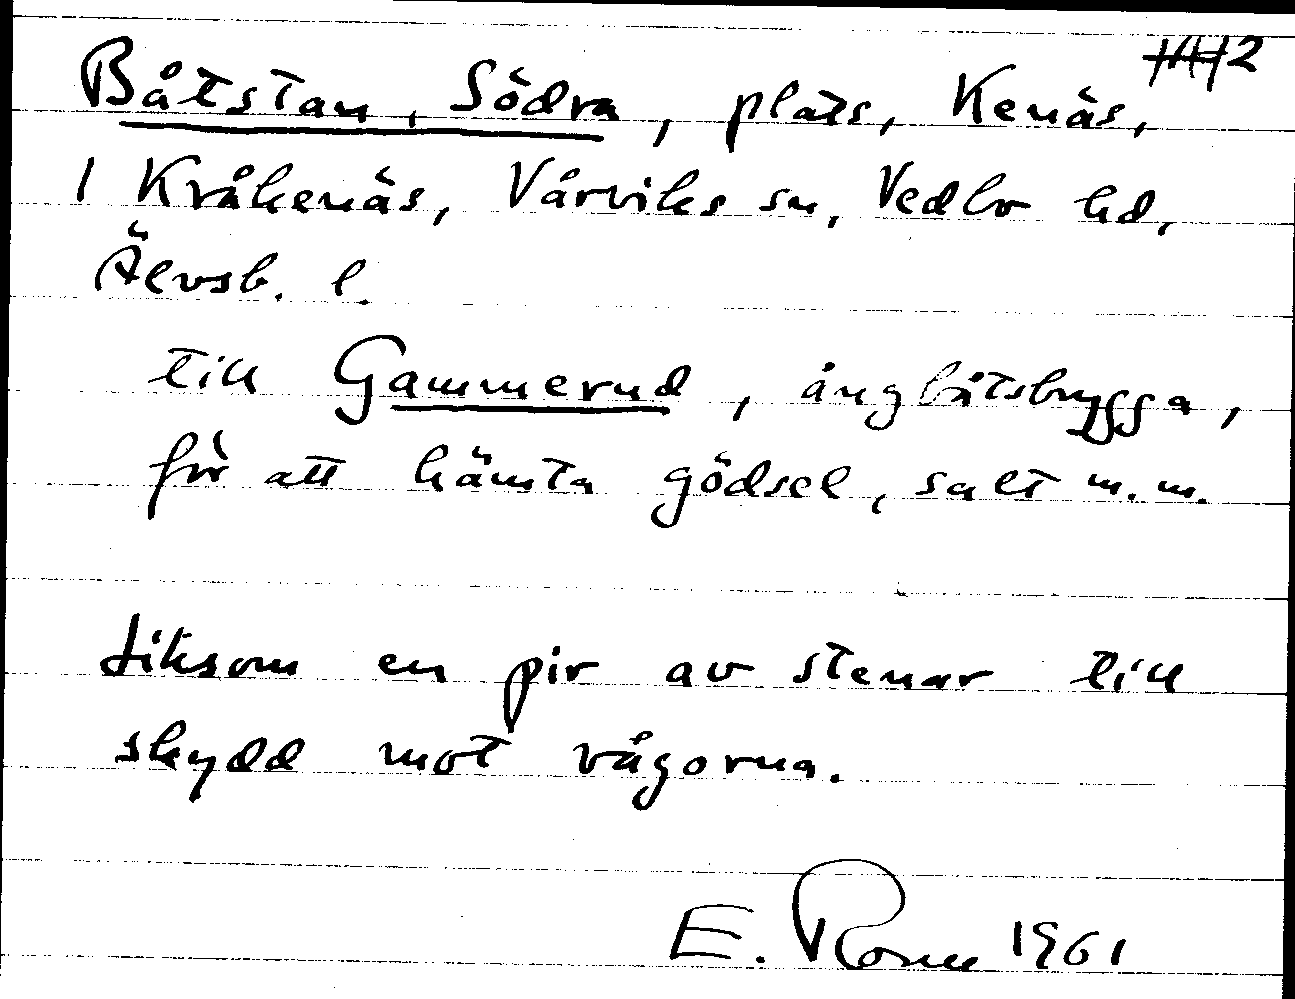 2
Båtstan, Södra, plats, Kenäs,
1 Kråkenäs, Vårviks sn, Vedbo hd,
Älvsb. l.
till Gammerud, ångbåtsbrygga,
för att hämta gödsel, salt m.m.
Liksom en pir av stenar till
skydd mot vågorna.
E. Rosne 1961